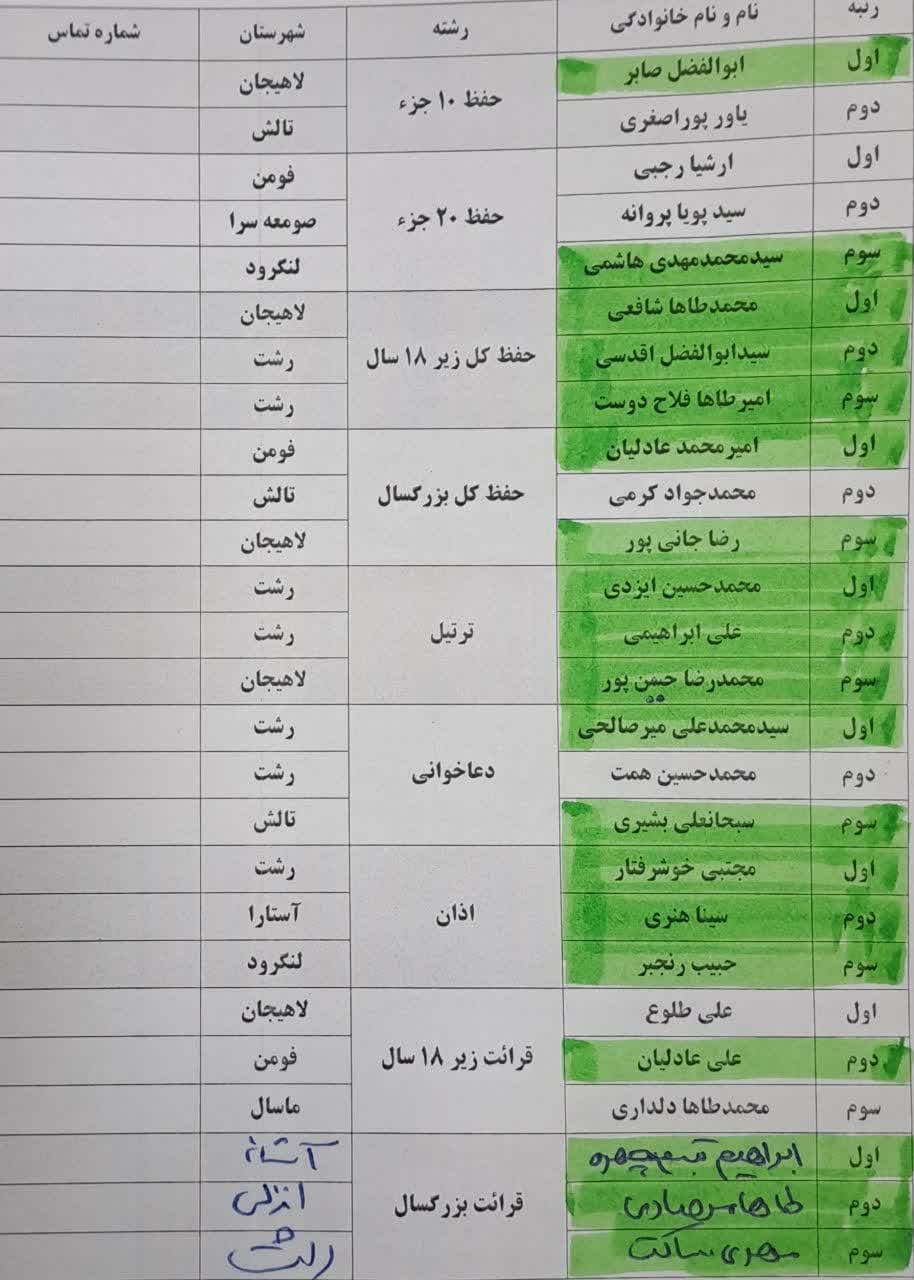 رتبه نام و نام خانوادگی رشته شهرستان شماره تماس
اول ابوالفضل صابر حفظ ۱۰ جزء لاهیجان
دوم یاور پوراصغری تالش
اول ارشیا رجبی حفظ ۲۰ جزء فومن
دوم سید پویا پروانه صومعه سرا
سوم سیدمحمدمهدی هاشمی لنگرود
اول محمدطاها شافعی حفظ کل زیر ۱۸ سال لاهیجان
دوم سیدابوالفضل اقدسی رشت
سوم امیرطاها فلاح دوست رشت
اول امیرمحمد عادلیان حفظ کل بزرگسال فومن
دوم محمدجواد کرمی تالش
سوم رضا جانی پور لاهیجان
اول محمدحسین ایزدی ترتیل رشت
دوم علی ابراهیمی رشت
سوم محمدرضا پور لاهیجان
اول سیدمحمدعلی میرصالحی دعاخوانی رشت
دوم محمدحسین همت رشت
سوم سبحانعلی بشیری تالش
اول مجتبی خوشرفتار اذان رشت
دوم سینا هنری آستارا
سوم حبیب رنجبر لنگرود
اول علی طلوع قرائت زیر ۱۸ سال لاهیجان
دوم علی عادلیان فومن
سوم محمدطاها دلداری ماسال
اول ابراهیم قرائت بزرگسال
دوم طاها انزلی
سوم مهدی ساکت رشت